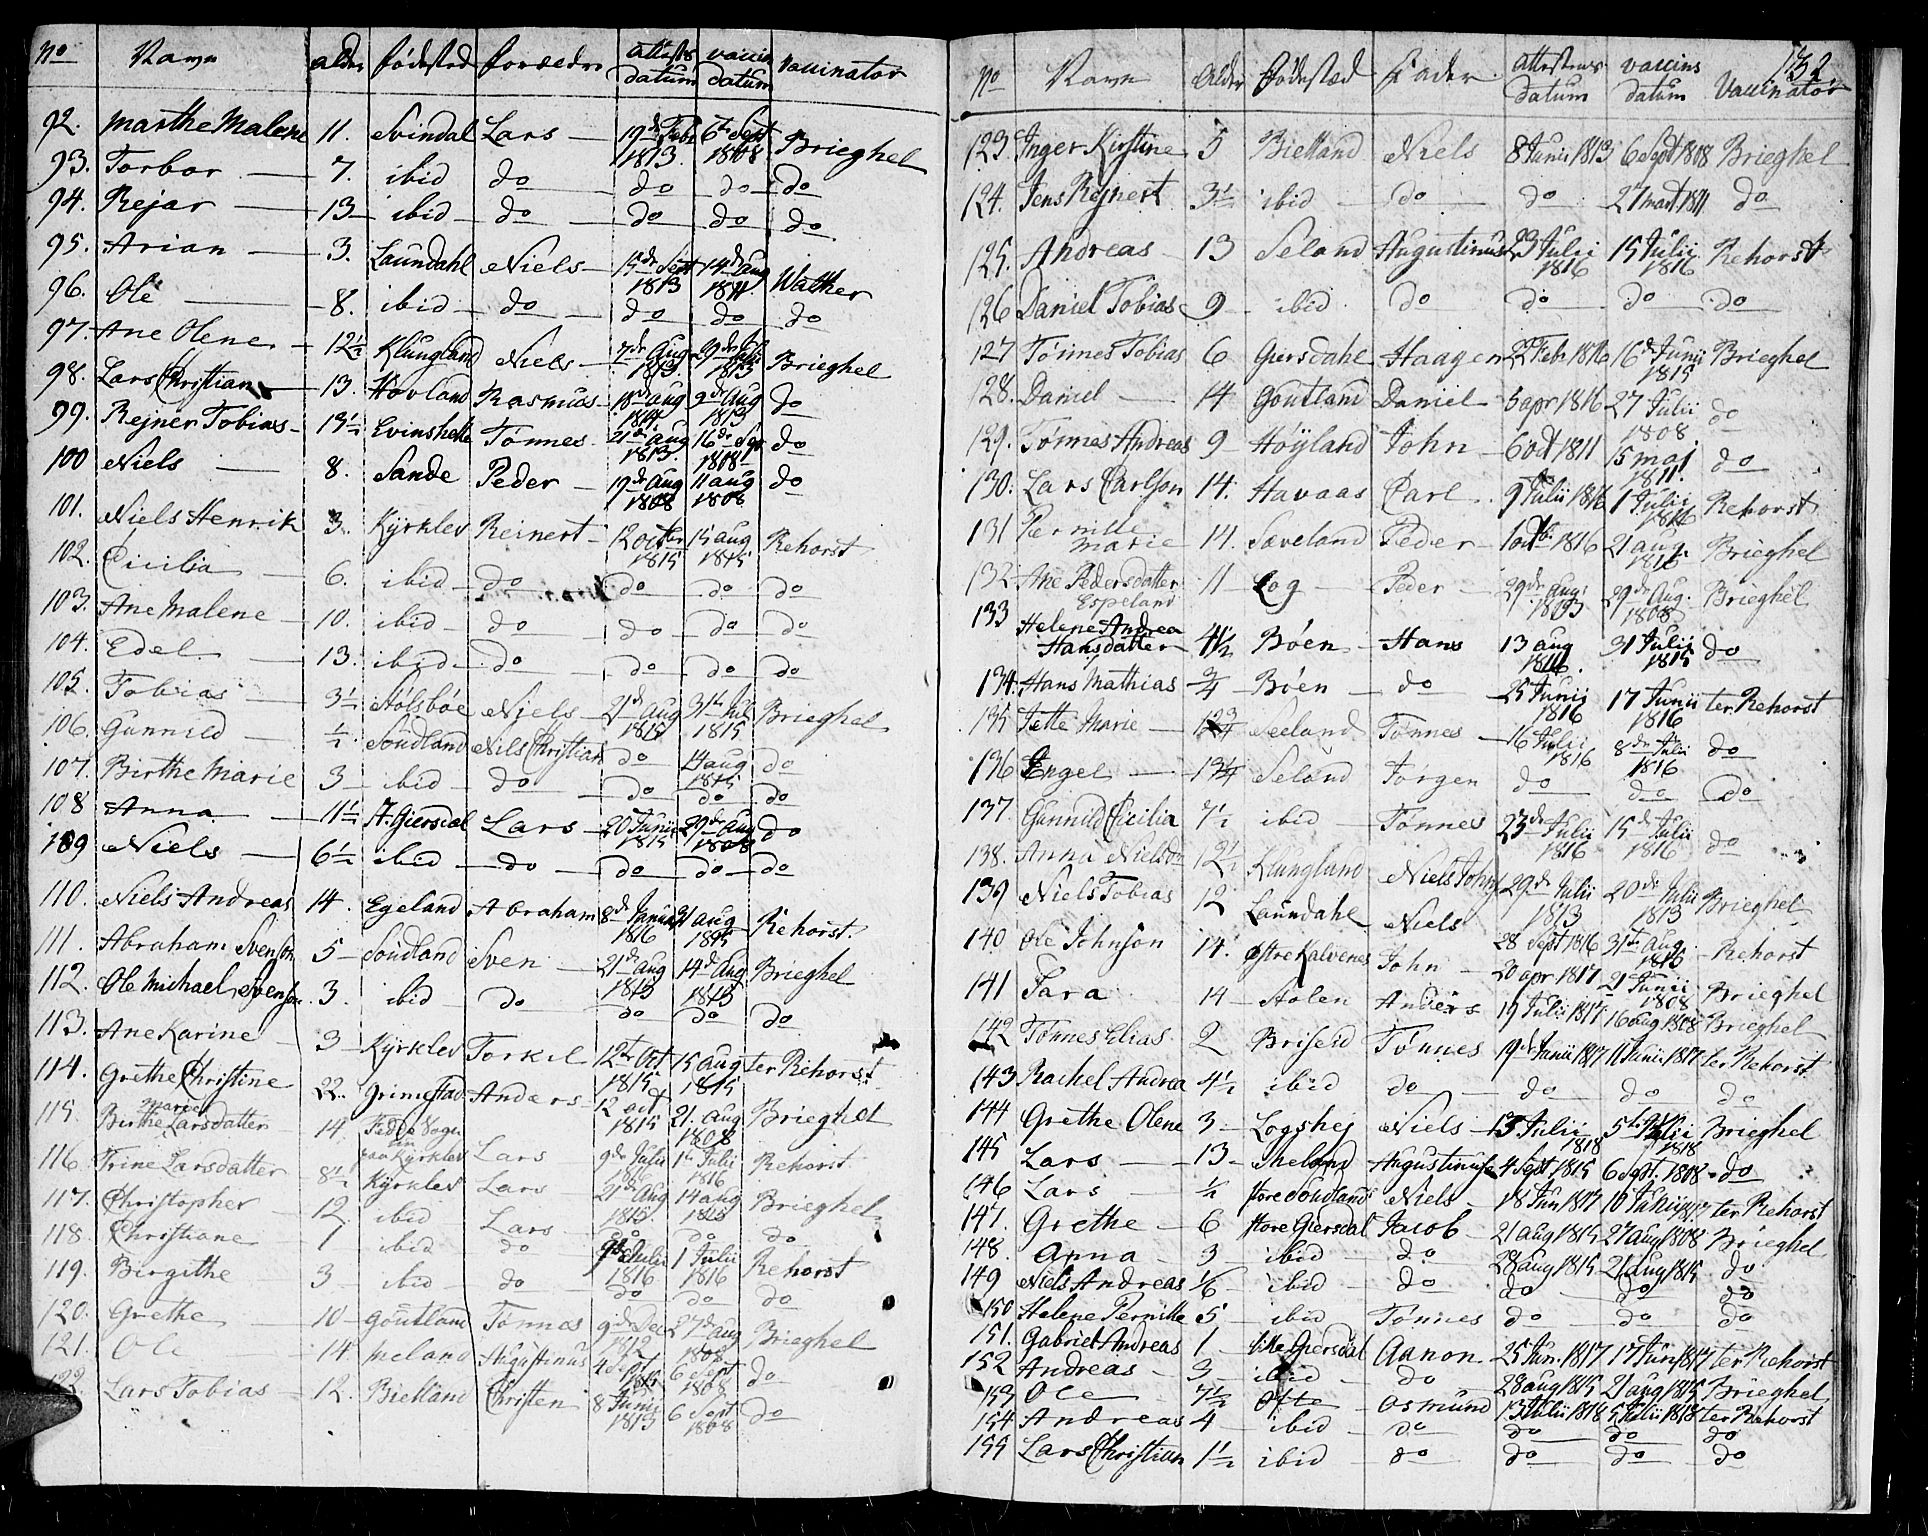 No Navn alder fødested forældre attests datum vaccin datum vaccinator
92. Marthe Malene 11. Svindal Lars 19de Febr 1813. 6te Sept 1808 Brieghel
93. Torbor 7. ibid do do do do
94. Rejar 13 ibid do do do do
95. Arian 3. Laundahl Niels 15de Sept 1813 14de aug 1811. Walker
96. Ole 8. ibid do do do do
97. Ane Olene 12½ Klungland Niels 7de Aug 1813 29de Julii 1813 Brieghel
98. Lars Christian 13. Hovland Rasmus 18de aug 1814. 9de Aug 1813 do
99. Rejner Tobias 13½ Evinshelle Tønnes 21de aug 1813 16de Sep 1808 do
100 Niels 8. Sande Peder 19de Aug 1808 11 aug 1808 do
101. Niels Henrik 3. Kyrklev Reinert 12 octer 1815 15 aug 1815 Rehorst
102. Cicilia 6. ibid do do do do
103. Ane Malene 10. ibid do do do do
104. Edel 13. ibid do do do do
105. Tobias 3½ Stølsbøe Njels 21de Aug 1815 31te Jul 1815 Brieghel
106. Gunnild ½ Soudland Nils Christian do 14 aug 1815 do
107. Birthe Marie 3 ibid do do do do
108 Anna 11½ St. Giersdal Lars 20 Junii 1815 29de Aug 1808 do
109 Niels 6½ ibid do do do do
110. Niels Andreas 14. Egeland Abraham 8de Janua 1816 31 aug 1815 Rehorst.
111. Abraham Svenson 5 Soudland Sven 21de aug 1815 14de Aug 1815 Brieghel
112. Ole Michael Svenson 3. ibid do do do do
113. Ane Karine 3 Kyrklev Torkil 12te Oct. 1815 15 aug 1815 ter Rehorst
114. Grethe Christine 22. Grimestad Anders 12 oct 1815 21. aug 1808 Brieghel
115. Birthe Marie Larsdatter 14 Fede Sogn paa Kyrklev Lars 9de Julii 1ste Julii 1816 Rehorst
116. Trine Larsdatter 8½ Kyrklev Lars 21de Aug 1815. 14 aug 1815 Brieghel
117. Christopher 12. ibid Lars do do do
118. Christiane 1 ibid do 9de Julii 1816 1 Julii 1816 Rehorst
119. Birgithe 3 ibid do do do do
120. Grethe 10 Goutland Tønnes 9de Dec 1812 27de aug 1808 Brieghel
121. Ole 14 Meland Augustinus 4 Sept 6 Sept 1808 do
122. Lars Tobias 12. Bielland Christen 8 Junii 1813 6 Sept 1808 do
132
No Navn Alder Fødested Fader Attestens datum vaccins datum Vaccinator
123. Inger Kirstine 5 Bielland Niels 8 Junii 1813 6 Sept 1808 Brieghel
124. Jens Rejnert 3½ ibid do do 27 mart 1811 do
125. Andreas 13 Seland Augustinus 23 Julii 1816 15 Julii 1816 Rehorst
126 Daniel Tobias 9 ibid do do do do
127 Tønnes Tobias 6 Giersdahl Haagen 22 Febr 1816 16de Junii 1815 Brieghel
128. Daniel 14 Goutland Daniel 5 apr 1816 27 Julii 1808 do
129. Tønnes Andreas 9 Høyland John 6 oct 1811 15 maj 1811. do
130. Lars Carlson 14. Havaas Carl 9 Julii 1816 1 Julii 1816 Rehorst
131 Pernille Marie 14. Sæveland Peder 1 octbr 1816 21 aug. 1816 Brieghel
132 Ane Pedersdatter Espeland 11 Log Peder 29de Aug. 1803 29de Aug. 1808 Brieghel
133 Helene Andrea Hansdatter 4½ Bøen Hans 13 aug 1816. 31 Julii 1815 do
134. Hans Mathias ¾ Bøen do 25 Junii 1816 17 Junii 1816 ter Rehorst
135 Jette Marie 12¾ Seeland Tønnes 16 Julii 1816 8de Julii 1816 do
136 Engel 13¼ Seland Jørgen do do do
137. Gunnild Cicilia 7½ ibid Tønnes 23de Julii 1816 15de Julii 1816 do
138. Anna Nielsdr 12½ Klungland Niels Johns 29de Julii 1813 20de Julii 1813 Brieghel
139 Niels Tobias 12 Laundahl Niels
140 Ole Johnson 14. Østre Kalvenes John 28 Sept 1816 31te Aug 1815 Rehorst
141 Sara 14 Stolen Anders 20 apr 1817 21 Junii 1808 Brieghel
142 Tønnes Elias 2 Briseid Tønnes 19 Julii 1817 16 aug 1808 Brieghel
143 Rachel Andrea 4½ ibid do 19de Junii 1817 11 Junii 1817 ter Rehorst
do do do
144 Grethe Olene 3 Logshej Niels 13 Julii 1818 5te Julii 1818 Brieghel
145 Lars 13 Meland Augustinus 4 Sept. 1815 6 Sept. 1808 do
146 Lars ½ store Soudland Niels 18 Jun 1817 10 Junii 1817 ter Rehorst
147. Grethe 6 store Giersdal Jacob 21 aug 1815 27 aug 1808 Brieghel
148 Anna 3 ibid do 28 aug 1815 21 aug 1815 do
149 Niels Andreas ⅙ ibid do do do do
150 Helene Pernille 5 ibid Tønnes do do do
151. Gabriel Andreas 1 lille Giersdal Aanon 25 Jun. 1817 17 Jun 1817 ter Rehorst
152 Andreas 3 ibid do 28 aug 1815 21 aug 1815 Brieghel
153 Ole 7½ Ofte Osmund 13 Julii 1818 5 Julii 1818 ter Rehorst
154 Andreas 4 ibid do do do do
155 Lars Christian 1½ ibid do do do do